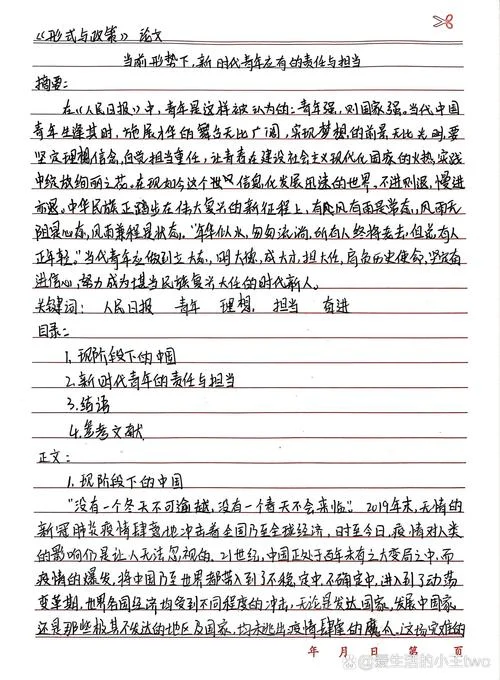 《形式与政策》 论文
当前形势下，新时代青年应有的责任与担当
摘要：
在《人民日报》中，青年是这样被认为的：青年强，则国家强。当代中国
青年生逢其时，施展才华的舞台无比广阔，实现梦想的前景无比光明，要
坚定理想信念，自觉担当重任，让青春在建设社会主义现代化国家的火热实践
中绽放绚丽之花。在现如今这个 信息化发展迅速的世界，不进则退，慢进
亦退。中华民族正踏步在伟大复兴的新征程上，有风有雨是常态，风雨无
阻是心态，风雨兼程是状态。“年华似水，匆匆流淌，所有人终将老去，但总有人
正年轻。”当代青年应做到立大志，明大德，成大才，担大任，肩负历史使命，坚定前
进信心，努力成为堪当民族复兴大任的时代新人。
关键词： 人民日报 青年 理想， 担当 奋进
目录：
1. 现阶段下的中国
2. 新时代青年的责任与担当
3. 结语
4. 参考文献
正文：
1. 现阶段下的中国
“没有一个冬天不可逾越，没有一个春天不会来临”。2019年末，无情的
新冠肺炎疫情肆虐地冲击着全国乃至全球经济，时至今日，疫情对人类
的影响仍是让人无法忽视的，21世纪，中国正处于百年未有之大变局之中，而
疫情的爆发，将中国乃至世界都带入到了不稳定中，不确定中，进入到了动荡
变革期，世界各国经济均受到不同程度的冲击，无论是发达国家，发展中国家，
还是那些极其不发达的地区及国家，均未逃出疫情肆虐的魔令。这场灾难的
年 月 日 第 页
@爱生活的小王two